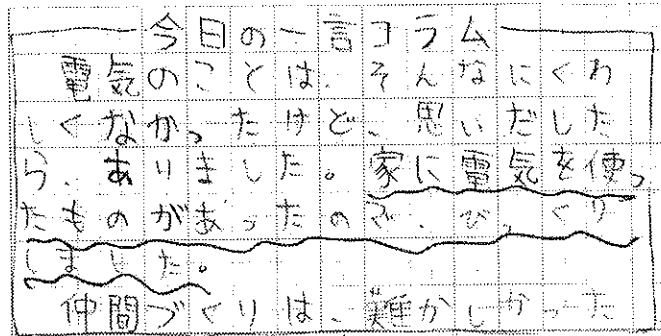 今日の一言コラム
電気のことは、そんなにくわ
しくなかったけど、思いだした
ら、ありました。家に電気を使っ
たものがあったので、びっくり
しました。
仲間づくりは、難かしかった